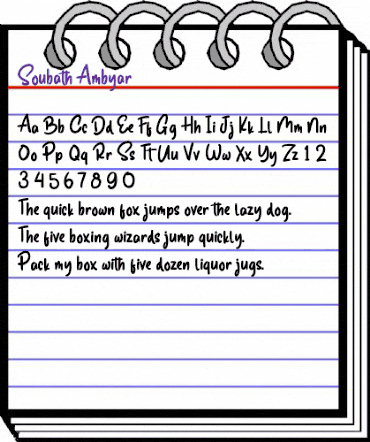 Soubath Ambyar
Aa Bb Cc Dd Ee Ff Gg Hh Ii Jj Kk Ll Mm Nn
Oo Pp Qq Rr Ss Tt Uu Vv Ww Xx Yy Zz 1 2
3 4 5 6 7 8 9 0
The quick brown fox jumps over the lazy dog.
The five boxing wizards jump quickly.
Pack my box with five dozen liquor jugs.